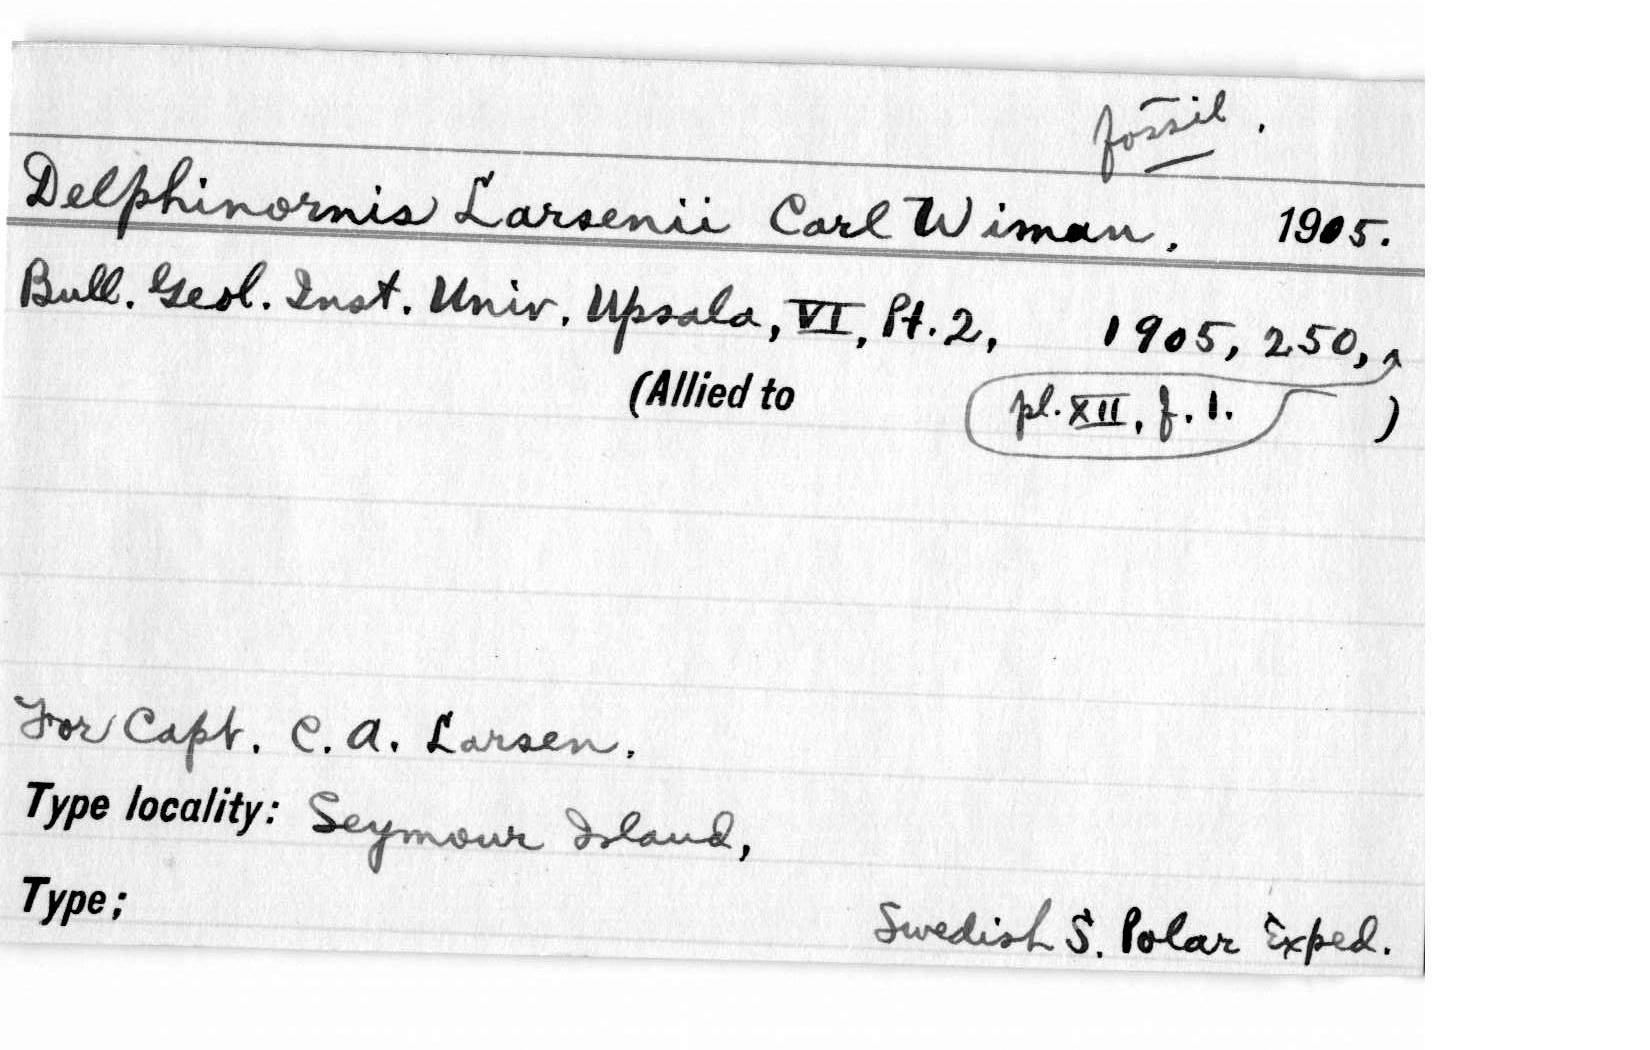 fossil.
Delphinornis Larsenii Carl Wiman. 1905.
Bull. Geol. Inst. Univ. Upsala, VI, Pt. 2, 1905, 250,
(Allied to pl. XII, f. 1. )
For Capt. C. A. Larsen.
Type locality: Seymour Island,
Type;
Swedish S. Polar Exped.